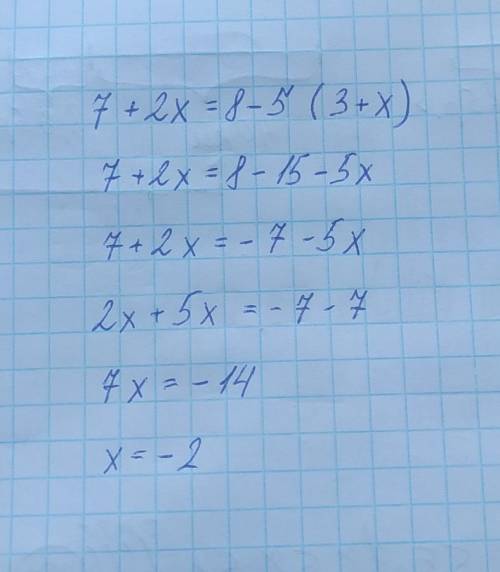 7 + 2x = 8 - 5 (3 + x)
7 + 2x = 8 - 15 - 5x
7 + 2x = - 7 - 5x
2x + 5x = - 7 - 7
7x = - 14
x = - 2